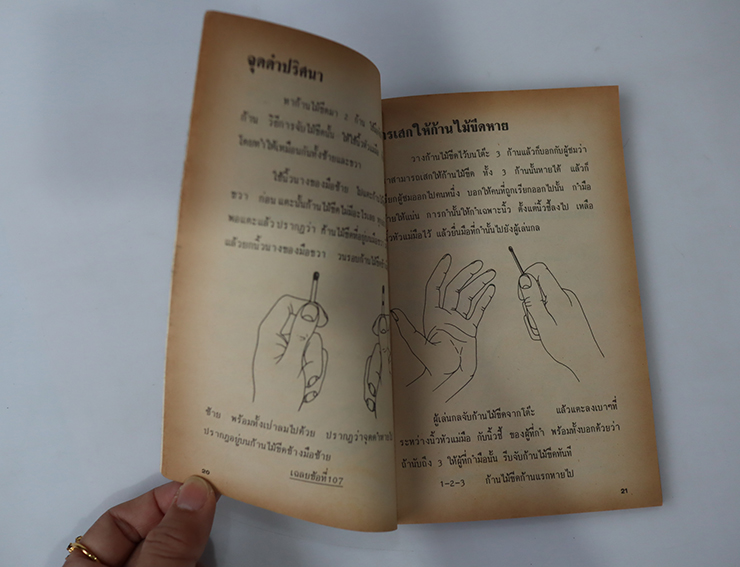 จุดดำปริศนา
หาก้านไม้ขีดมา 2 ก้าน
ก้าน วิธีการจับไม้ขีดนั้น ให้ใช้นิ้ว
โดยทำให้เหมือนกันทั้งซ้ายและขวา
ใช้นิ้วนางของมือซ้าย
ขวา ก่อน แตะนั้นก้านไม้ขีดไม่มีอะไรเลย
พอแตะแล้วปรากฏว่า ก้านไม้ขีดที่อยู่บนมือ
แล้วยกนิ้วนางของมือขวา วนรอบก้านไม้ขีด
ซ้าย พร้อมทั้งเป่าลมไปด้วย ปรากฏว่าจุดดำ
ปรากฏอยู่บนก้านไม้ขีดข้างมือซ้าย
เฉลยข้อที่107
๒๐
เสกให้ก้านไม้ขีดหาย
วางก้านไม้ขีดไว้บนโต๊ะ 3 ก้านแล้วก็บอกกับผู้ชมว่า
สามารถเสกให้ก้านไม้ขีด ทั้ง 3 ก้านนั้นหายได้ แล้วก็
ผู้ชมออกไปคนหนึ่ง บอกให้คนที่ถูกเรียกออกไปนั้น กำมือ
ให้แน่น การกำนั้นให้กำเฉพาะนิ้ว ตั้งแต่นิ้วชี้ลงไป เหลือ
นิ้วหัวแม่มือไว้ แล้วยื่นมือที่กำนั้นไปยังผู้เล่นกล
ผู้เล่นกลจับก้านไม้ขีดจากโต๊ะ แล้วแตะลงเบาๆที่
ระหว่างนิ้วหัวแม่มือ กับนิ้วชี้ ของผู้ที่กำ พร้อมทั้งบอกด้วยว่า
ถ้านับถึง 3 ให้ผู้ที่กำมือนั้น รีบจับก้านไม้ขีดทันที
1-2-3 ก้านไม้ขีดก้านแรกหายไป
21